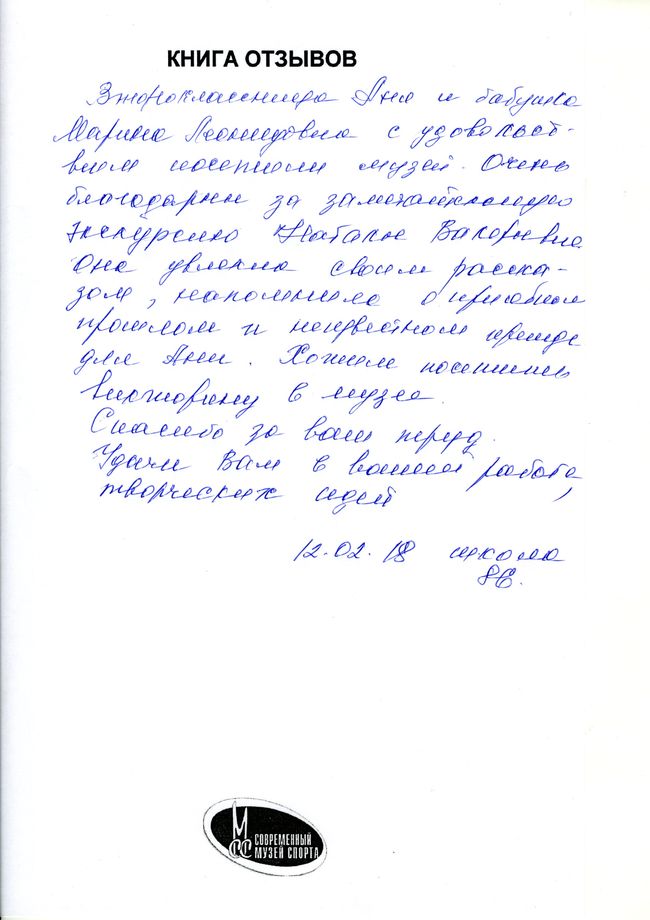 КНИГА ОТЗЫВОВ
Второклассница Аня и бабушка
Марина Леонидовна с удовольст-
вием посетили музей. Очень
благодарны за замечательную
экскурсию Наталье Валерьевне.
Она увлекла своим расска-
зом, напомнила о
прошлом и неизвестном прежде
для Ани. Хотим посетить
викторину в музее.
Спасибо за ваш труд.
Удачи Вам в вашей работе,
творческих идей
12.02.18 школа
МСС СОВРЕМЕННЫЙ
МУЗЕЙ СПОРТА